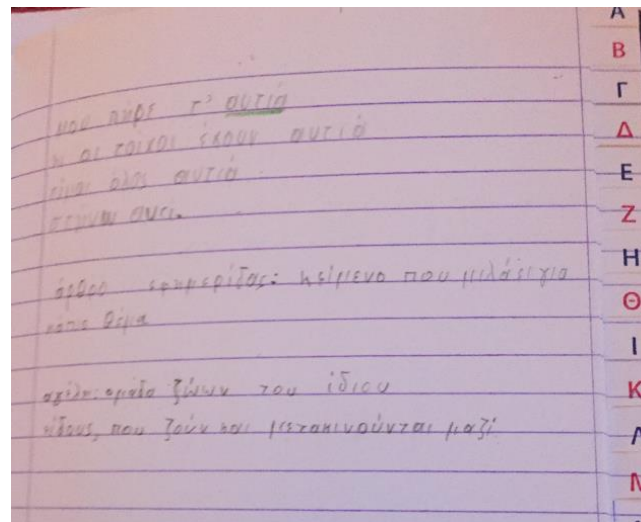 μου πήρε τ' αυτιά
κι οι τοίχοι έχουν αυτιά
είμαι όλος αυτιά
στήνω αυτί.
άρθρο εφημερίδας: κείμενο που μιλάει για
κάποιο θέμα
αγέλη: ομάδα ζώων του ίδιου
είδους, που ζούν και μετακινούνται μαζί
Α
Β
Γ
Δ
Ε
Ζ
Η
Θ
Ι
Κ
Λ
Μ